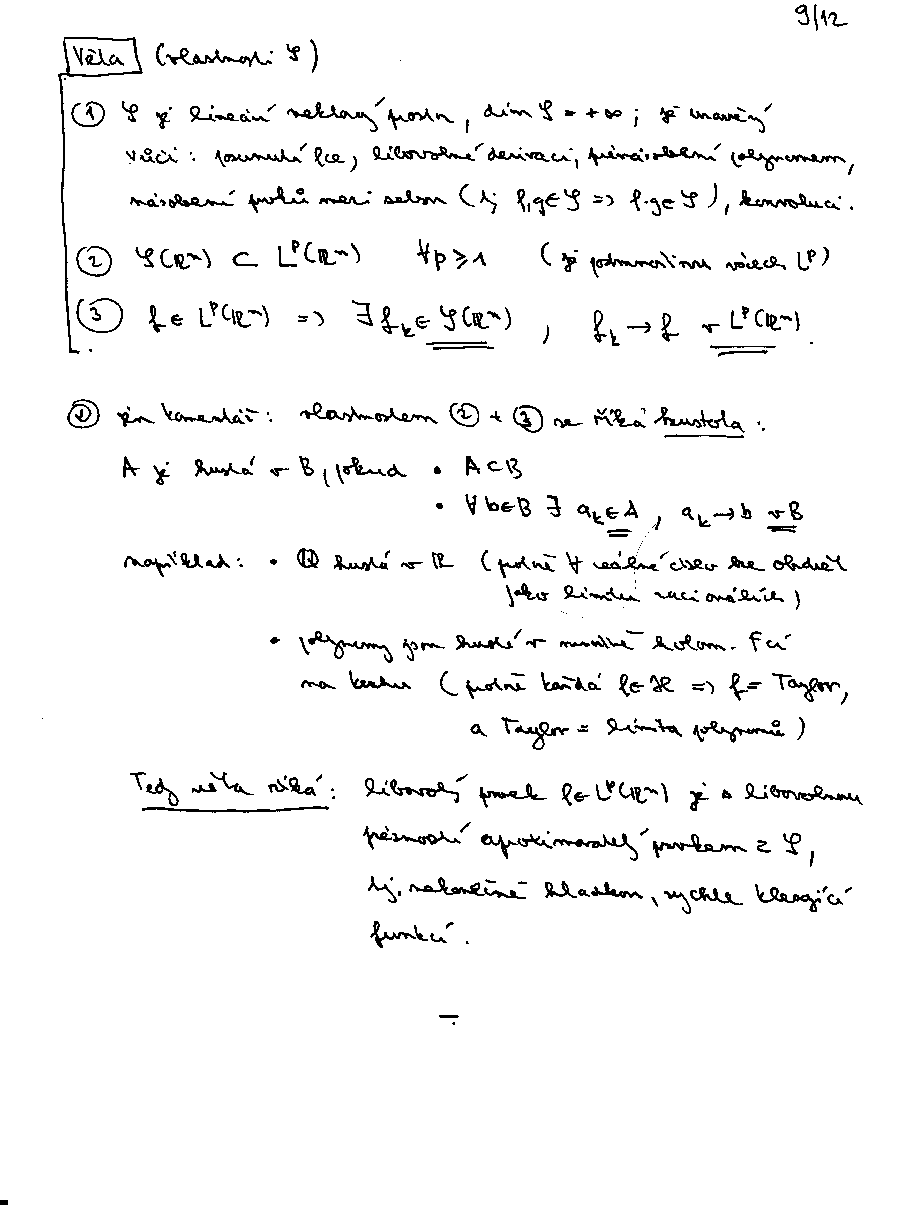 9/12
Věta (vlastnosti 𝒮)
① 𝒮 je lineární vektorový prostor, dim 𝒮 = +∞; je uzavřený
vůči: posunutí fce, libovolné derivaci, přenásobení polynomem,
násobení prvků mezi sebou (tj f,g∈𝒮 => f·g∈𝒮), konvoluci.
② 𝒮(ℝⁿ) ⊂ Lᵖ(ℝⁿ) ∀p⩾1 (je podmnožinou všech Lᵖ)
③ f∈Lᵖ(ℝⁿ) => ∃f_k∈𝒮(ℝⁿ), f_k→f v Lᵖ(ℝⁿ).
jen komentář: vlastnostem ② + ③ se říká hustota:
A je hustá v B, pokud • A⊂B
• ∀b∈B ∃ a_k∈A, a_k→b v B
například: • ℚ hustá v ℝ (protně ∀ reálné číslo lze obdržet
jako limitu racionálních)
• polynomy jsou husté v množině holom. fcí
na kruhu (protně každá f∈ℋ => f = Taylor,
a Taylor = limita polynomů)
Tedy věta říká: libovolný prvek f∈Lᵖ(ℝⁿ) je s libovolnou
přesností aproximovatelný prvkem z 𝒮,
tj. nekonečně hladkou, rychle klesající
funkcí.